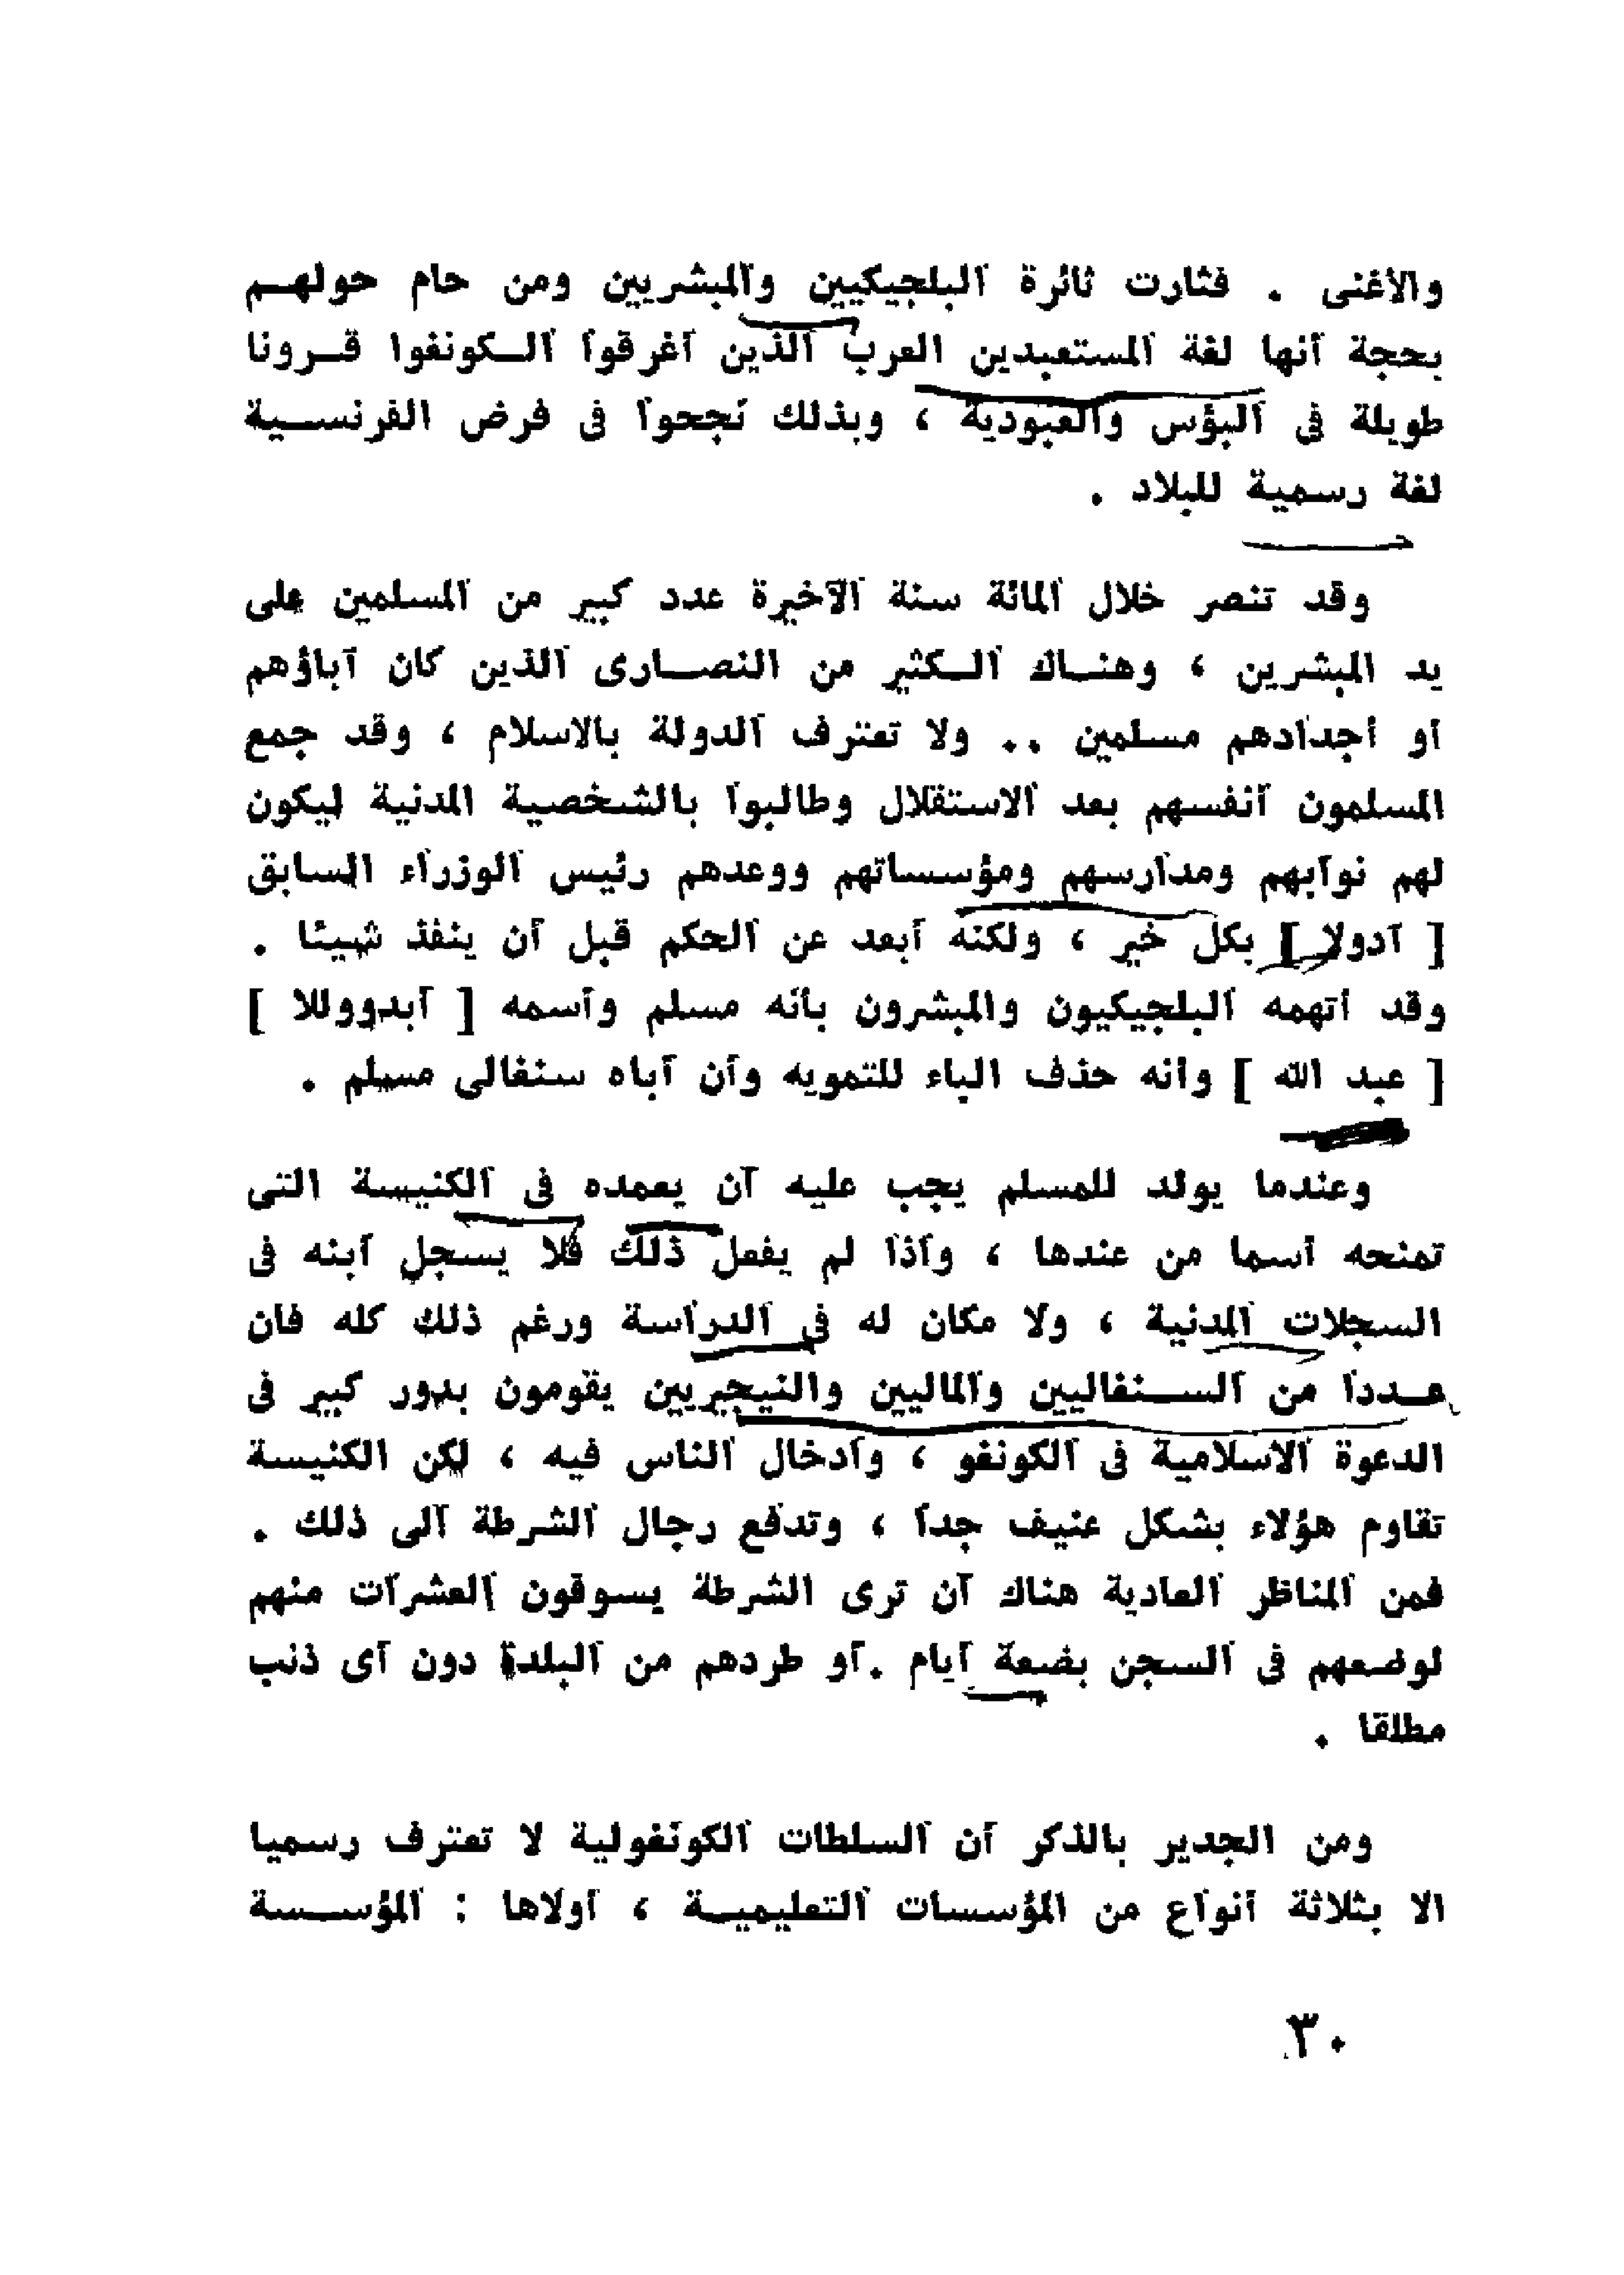 والأغنى . فثارت ثائرة البلجيكيين والمبشريين ومن حام حولهم
بحجة أنها لغة المستعبدين العرب الذين أغرقوا الكونغوا قرونا
طويلة فى البؤس والعبودية ، وبذلك نجحوا فى فرض الفرنسية
لغة رسمية للبلاد .
وقد تنصر خلال المائة سنة الآخيرة عدد كبير من المسلمين على
يد المبشرين ، وهناك الكثير من النصارى الذين كان آباؤهم
أو أجدادهم مسلمين .. ولا تعترف الدولة بالاسلام ، وقد جمع
المسلمون أنفسهم بعد الاستقلال وطالبوا بالشخصية المدنية ليكون
لهم نوابهم ومدارسهم ومؤسساتهم ووعدهم رئيس الوزراء السابق
[ أدولا ] بكل خير ، ولكنه أبعد عن الحكم قبل أن ينفذ شيئا .
وقد اتهمه البلجيكيون والمبشرون بأنه مسلم وأسمه [ أبدووللا ]
[ عبد الله ] وأنه حذف الباء للتمويه وأن أباه سنغالى مسلم .
وعندما يولد للمسلم يجب عليه أن يعمده فى الكنيسة التى
تمنحه أسما من عندها ، وأذا لم يفعل ذلك فلا يسجل أبنه فى
السجلات المدنية ، ولا مكان له فى الدراسة ورغم ذلك كله فان
عددا من السنغاليين والماليين والنيجيريين يقومون بدور كبير فى
الدعوة الاسلامية فى الكونغو ، وأدخال الناس فيه ، لكن الكنيسة
تقاوم هؤلاء بشكل عنيف جدا ، وتدفع رجال الشرطة ألى ذلك .
فمن المناظر العادية هناك أن ترى الشرطة يسوقون العشرات منهم
لوضعهم فى السجن بضعة أيام . أو طردهم من البلدة دون أى ذنب
مطلقا .
ومن الجدير بالذكر أن السلطات الكونغولية لا تعترف رسميا
الا بثلاثة أنواع من المؤسسات التعليمية ، أولاها : المؤسسة
٣٠